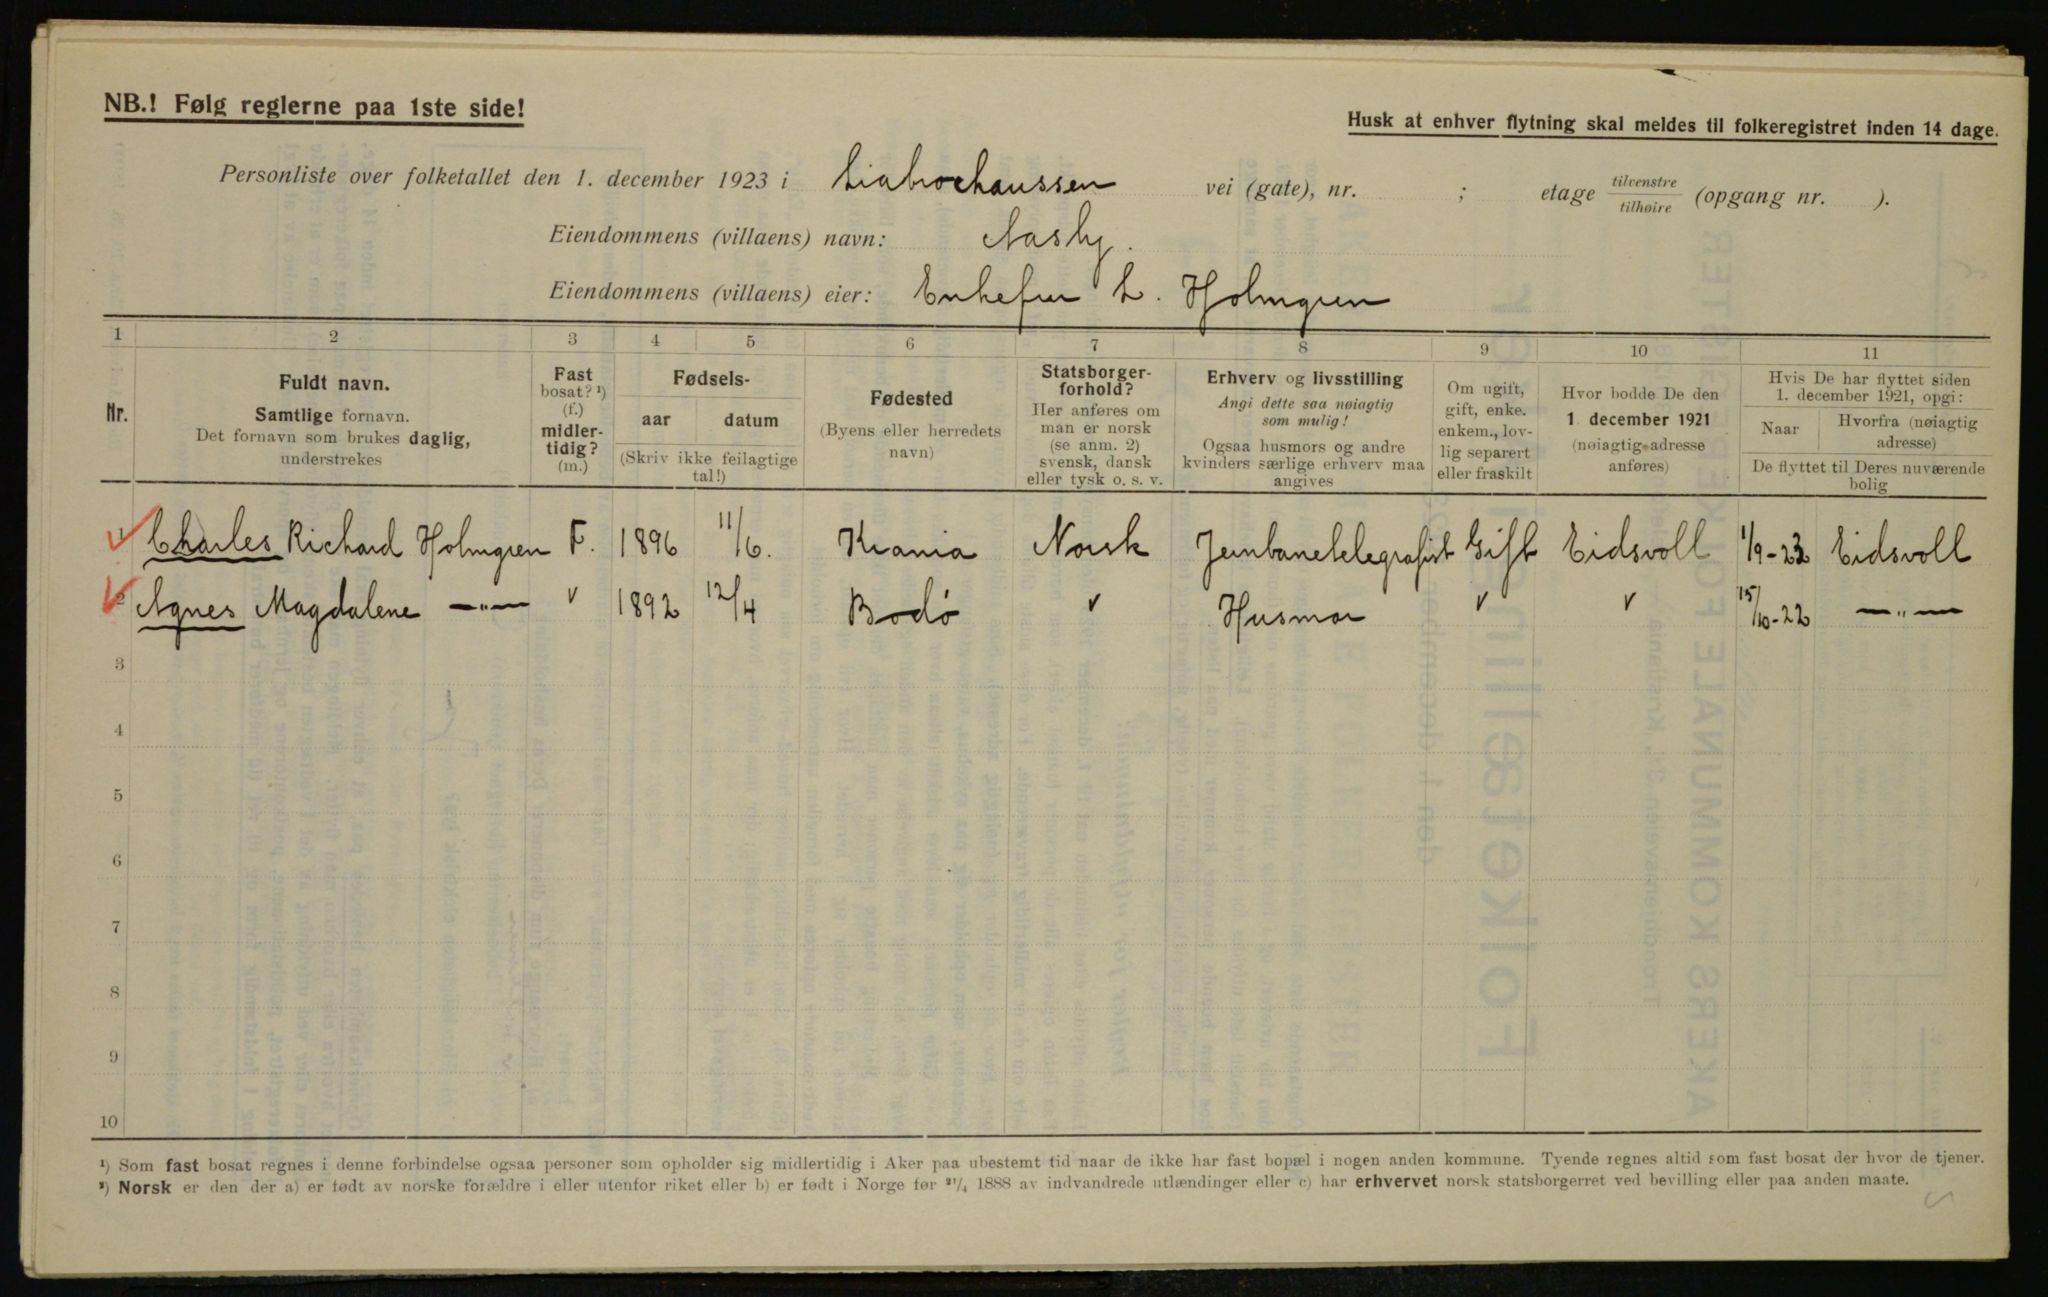 NB.! Følg reglerne paa 1ste side!
Husk at enhver flytning skal meldes til folkeregistret inden 14 dage.
Personliste over folketallet den 1. december 1923 i Liabrochaussen vei (gate), nr. ; etage tilvenstre / tilhøire (opgang nr. ).
Eiendommens (villaens) navn: Aasly.
Eiendommens (villaens) eier: Enkefru L. Holmgren
1 2 3 4 5 6 7 8 9 10 11
Nr.
Fuldt navn.
Samtlige fornavn.
Det fornavn som brukes daglig,
understrekes
Fast
bosat? ¹)
(f.)
midler-
tidig?
(m.)
Fødsels-
aar datum
(Skriv ikke feilagtige
tal!)
Fødested
(Byens eller herredets
navn)
Statsborger-
forhold?
Her anføres om
man er norsk
(se anm. 2)
svensk, dansk
eller tysk o. s. v.
Erhverv og livsstilling
Angi dette saa nøiagtig
som mulig!
Ogsaa husmors og andre
kvinders særlige erhverv maa
angives
Om ugift,
gift, enke.
enkem., lov-
lig separert
eller fraskilt
Hvor bodde De den
1 december 1921
(nøiagtig adresse
anføres)
Hvis De har flyttet siden
1. december 1921, opgi:
Naar
Hvorfra (nøiagtig
adresse)
De flyttet til Deres nuværende
bolig
1 Charles Richard Holmgren F. 1896 11/6. Krania Norsk Jernbanetelegrafist Gift Eidsvoll 1/9-23 Eidsvoll
2 Agnes Magdalene —"— v 1892 12/4 Bodø v Husmor v v 15/10-22 —"—
3
4
5
6
7
8
9
10
¹) Som fast bosat regnes i denne forbindelse ogsaa personer som opholder sig midlertidig i Aker paa ubestemt tid naar de ikke har fast bopæl i nogen anden kommune. Tyende regnes altid som fast bosat der hvor de tjener.
²) Norsk er den der a) er født av norske forældre i eller utenfor riket eller b) er født i Norge før 21/4 1888 av indvandrede utlændinger eller c) har erhvervet norsk statsborgerret ved bevilling eller paa anden maate.